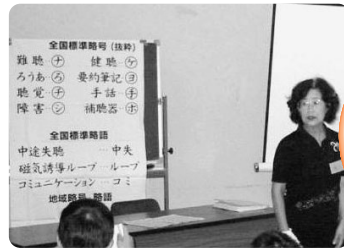 全国標準略号(抜粋)
難聴…㋤ 健聴…㋘
ろうあ…ろ 要約筆記…㋵
聴覚…㋠ 手話…手
障害…㋛ 補聴器…㋭
全国標準略語
中途失聴 … 中失
磁気誘導ループ … ループ
コミュニケーション … コミ
地域略号・略語